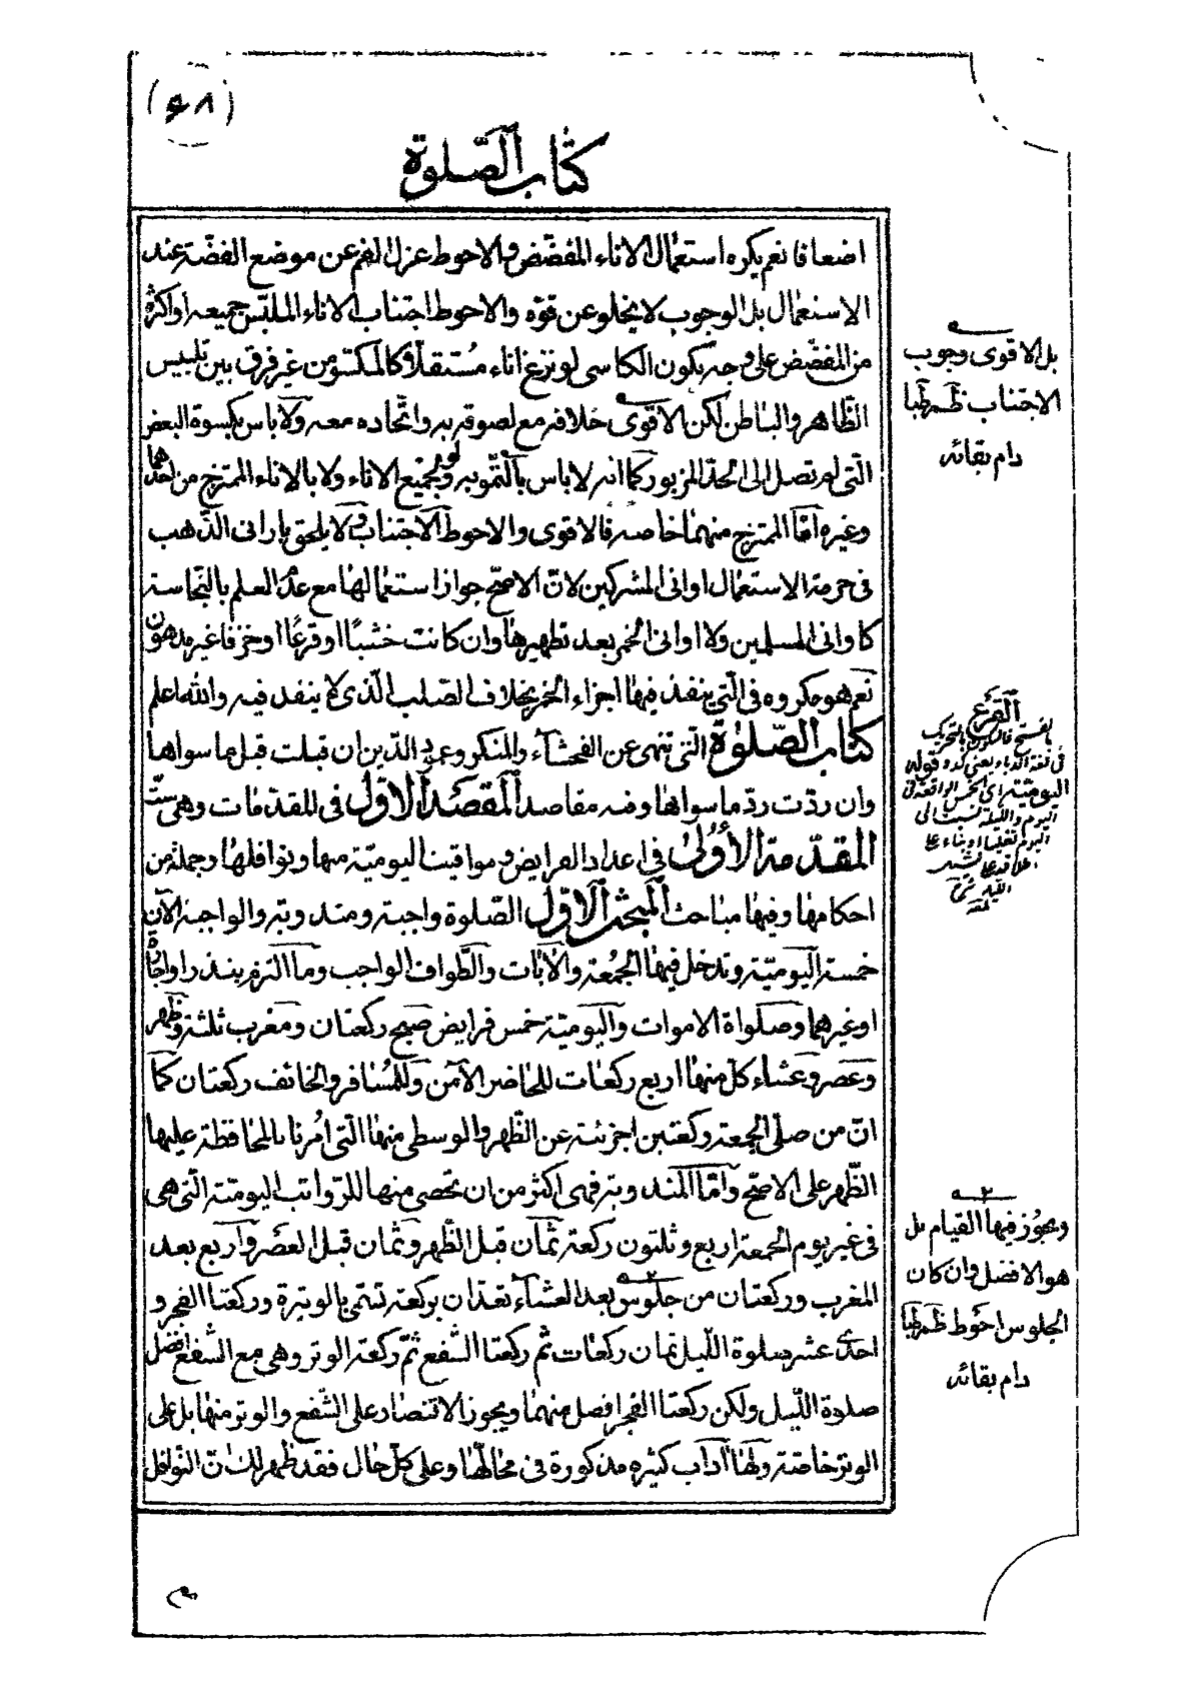 (٤٨)
كتاب الصّلوة
اضعافا نعم يكره استعمال الاناء المفضّض والاحوط عزل الفم عن موضع الفضّة عند
الاستعمال بل الوجوب لا يخلو عن قوّة والاحوط اجتناب الاناء الملبّس جميعه او اكثره
من المفضّض على وجه يكون الكاسى لو نزع اناء مُستقلّا كالمكسوّ من غير فرق بين تلبيس
الظّاهر والباطن لكن الاقوى خلافه مع لصوقه به واتّحاده معه ولا باس بكسوة البعض
الّتى لم تصل الى الحدّ المزبور كما انه لا باس بالتّمويه ولو لجميع الاناء ولا بالاناء الممتزج من احدهما
وغيره امّا الممتزج منهما خاصه فالاقوى والاحوط الاجتناب ولا يلحق باوانى الذّهب
فى حرمة الاستعمال اوانى المشركين لانّ الاصحّ جواز استعمالها مع عدم العلم بالنّجاسة
كاوانى المسلمين ولا اوانى الخمر بعد تطهيرها وان كانت خشبًا او قرعًا او خزفا غير مدهون
نعم هو مكروه فى الّتى ينفذ فيها اجزاء الخمر بخلاف الصّلب الّذى لا ينفد فيه والله اعلم
كتاب الصّلوة الّتى تنهى عن الفحشاء والمنكر وعمود الدّين ان قبلت قبل ما سواها
وان ردّت ردّ ما سواها وفيه مقاصد المقصد الاوّل فى المقدّمات وهى ستّ
المقدّمة الأولى فى اعداد الفرايض ومواقيت اليوميّة منها ونوافلها وجملة من
احكامها وفيها مباحث المبحث الاوّل الصّلوة واجبة ومندوبة والواجبة الآن
خمسة اليوميّة وتدخل فيها الجُمُعة والآيات والطّواف الواجب وما التزم بنذر او اجارة
او غيرهما وصلواة الاموات واليوميّة خمس فرايض صبح ركعتان ومغرب ثلثة وظهر
وعصر وعشاء كلّ منها اربع ركعات للحاضر الآمن وللمُسافر والخائف ركعتان كما
انّ من صلّى الجمعة ركعتين اجزئته عن الظّهر والوسطى منها الّتى اُمرنا بالمحافظة عليها
الظّهر على الاصحّ وامّا المندوبة فهى اكثر من ان تحصى منها الرّواتب اليوميّة الّتى هى
فى غير يوم الجمعة اربع وثلثون ركعة ثمان قبل الظّهر وثمان قبل العصر واربع بعد
المغرب وركعتان من جلوس بعد العشاء تعدّان بركعة تسمّى بالوتيرة وركعتا الفجر و
احدى عشر صلوة اللّيل ثمان ركعات ثم ركعتا الشّفع ثمّ ركعة الوتر وهى مع الشّفع افضل
صلوة اللّيل ولكن ركعتا الفجر افضل منهما ويجوز الاقتصار على الشّفع والوتر منها بل على
الوتر خاصّة ولها آداب كثيره مذكورة فى محالّها وعلى كلّ حال فقد ظهر لك انّ النّوافل
بل الاقوى وجوب
الاجتناب ظم طبا
دام بقائه
القرع
بالفتح فالسكون
اليوميّة اى الخمس الواقعة فى
اليوم والليلة نسبت الى
اليوم تغليبا او بناء على
ويجوز فيها القيام بل
هو الافضل وان كان
الجلوس احوط ظم طبا
دام بقائه